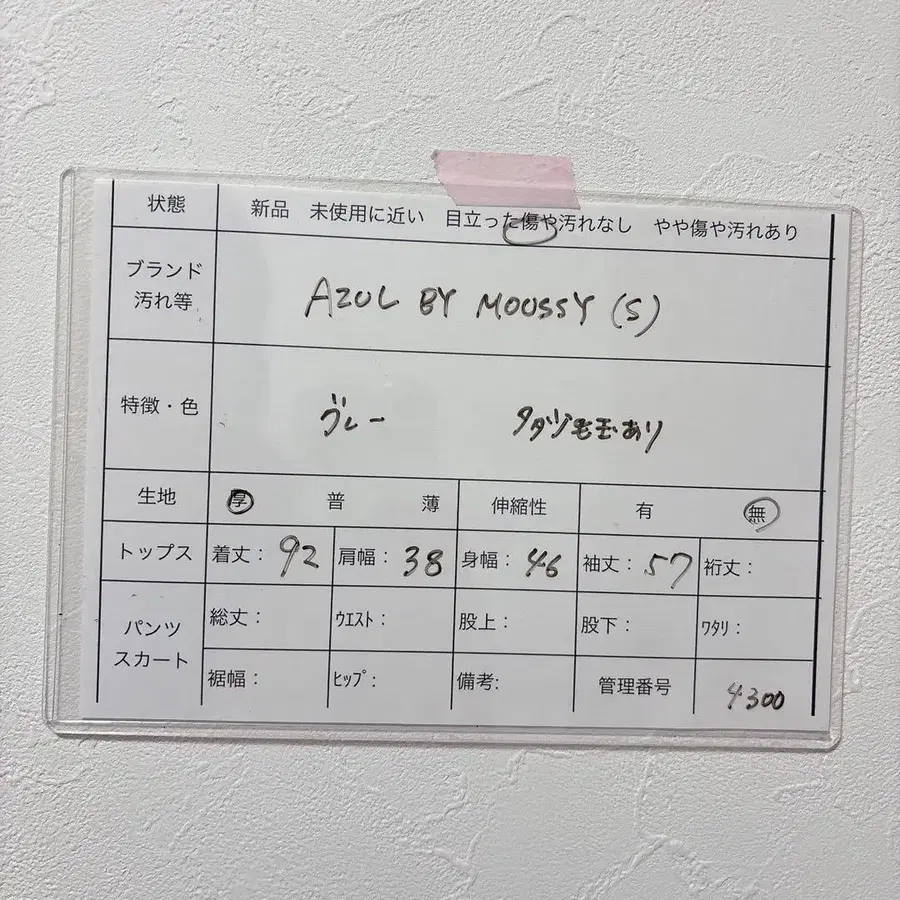 状態 新品 未使用に近い 目立った傷や汚れなし やや傷や汚れあり
ブランド
汚れ等
AZUL BY MOUSSY (S)
特徴・色 グレー 毛玉あり
生地 厚 普 薄 伸縮性 有 無
トップス 着丈: 92 肩幅: 38 身幅: 46 袖丈: 57 裄丈:
パンツ
スカート
総丈: ウエスト: 股上: 股下: ワタリ:
裾幅: ヒップ: 備考: 管理番号 4300